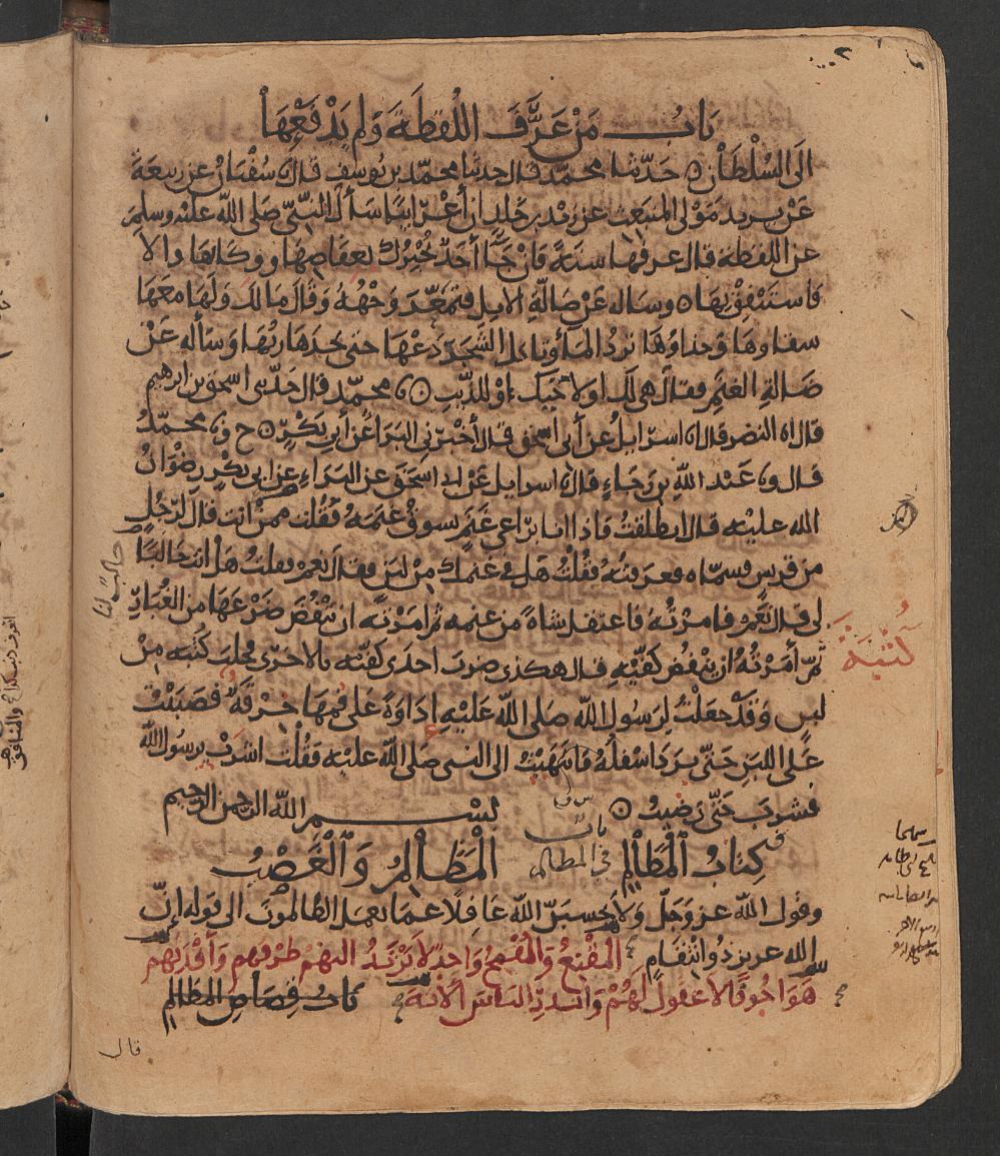 باب من عرّف اللقطة ولم يدفعها
الى السلطان ○ حدّثنا محمّد قال حدثنا محمّد بن يوسف قال نا سفيان عن ربيعة
عن يزيد مولى المنبعث عن زيد بن خلد ان أعرابيا سأل النبيّ صلى الله عليه وسلم
عن اللقطة قال عرفها سنة فان جا أحد يخبرك بعفاصها ووكائها والا
فاستنفق بها ○ وساله عن ضالّة الابل فتمعّر وجهه وقال مالك ولها معها
سقاوها وحذاوها ترد الماء وتاكل الشجر دعها حتى يجدها ربها وسأله عن
ضالة الغنم فقال هي لك او لاخيك او للذّيب ○ نا محمّد قال حدّثني اسحق بن ابرهيم
قال انا النضر قال انا اسرايل عن أبي اسحق قال أخبرني البرا عن أبي بكر ○ ح ونا محمّد
قال ونا عبد الله بن رجاء قال نا اسرايل عن ابي اسحق عن البراء عن ابي بكر رضوان
الله عليه قال انطلقت فاذا انا براعي غنم يسوق غنمه فقلت ممن انت قال لرجل
من قريش فسمّاه فعرفته فقلت هل في غنمك من لبن فقال نعم فقلت هل انت حالب
لي قال نعم فامرته فاعتقل شاة من غنمه ثم امرته ان ينفض ضرعها من الغبار
ثمّ أمرته ان ينفض كفّيه قال هكذى ضرب احدى كفّيه بالاخرى فحلب كثبة من
لبن وقد جعلت لرسول الله صلى الله عليه إداوة على فمها خرقة فصببت
على اللبن حتّى برد اسفله فانتهيت الى النبي صلى الله عليه فقلت اشرب يرسول الله
فشرب حتّى رضيت ○ بسم الله الرحمن الرحيم
كتاب المظالم باب في المظالم المظالم والغصب
وقول الله عز وجل ولا تحسبنّ الله غافلا عما يعمل الظالمون الى قوله إنّ
الله عزيز ذو انتقام المقنع والمقمح واحد لا يرتد اليهم طرفهم وأفئدتهم
هوا جوفا لا عقول لهم وانذر الناس الآية باب قصاص المظالم
قال
كثبة
حالب لنا